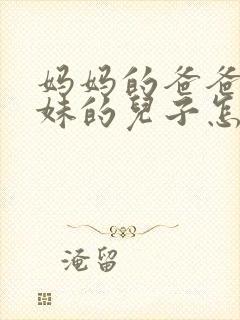 妈妈的爸爸
妹的兒子怎
淹留